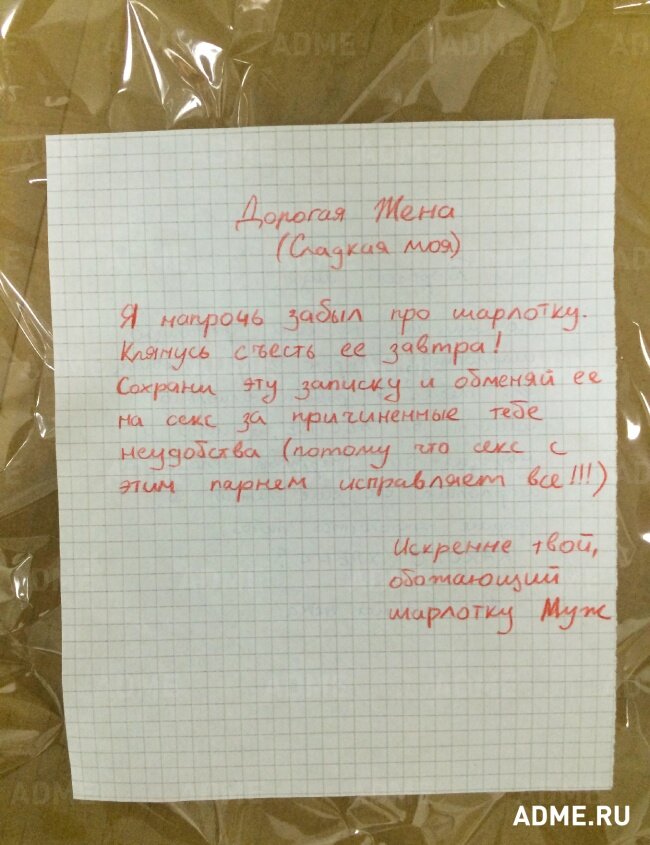 Дорогая Жена
(Сладкая моя)
Я напрочь забыл про шарлотку.
Клянусь съесть ее завтра!
Сохрани эту записку и обменяй ее
на секс за причиненные тебе
неудобства (потому что секс с
этим парнем исправляет все!!!)
Искренне твой,
обожающий
шарлотку Муж
ADME.RU